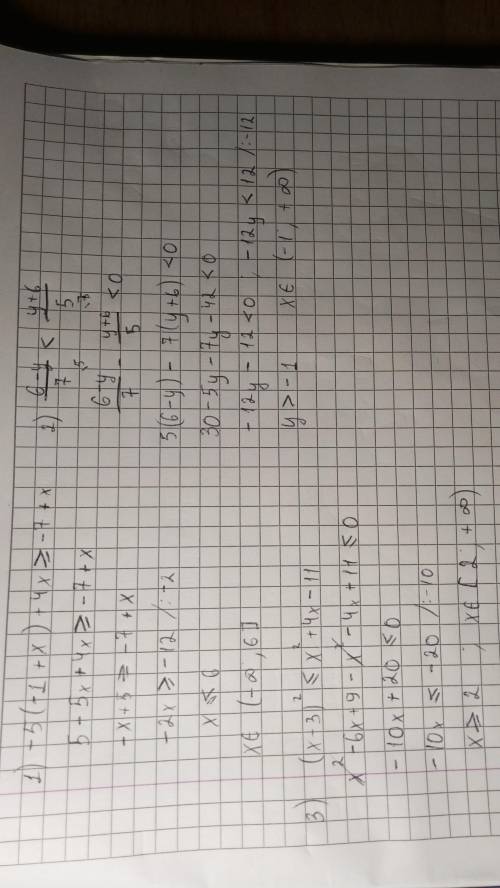 1) -5(-1+x)+4x ≥ -7+x
5-5x+4x ≥ -7+x
-x+5 ≥ -7+x
-2x ≥ -12 /:-2
x ≤ 6
x∈ (-∞, 6]
2) (6-y)/7 < (y+6)/5
·5 ·7
(6-y)/7 - (y+6)/5 < 0
5(6-y) - 7(y+6) < 0
30-5y-7y-42 < 0
-12y-12 < 0 ; -12y < 12 /:-12
y > -1 x∈ (-1, +∞)
3) (x-3)² ≤ x²+4x-11
x²-6x+9-x²-4x+11 ≤ 0
-10x+20 ≤ 0
-10x ≤ -20 /:-10
x ≥ 2 ; x∈ [2, +∞)